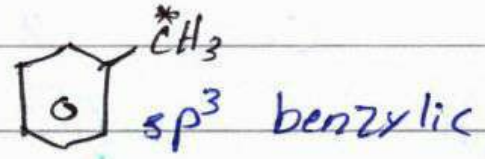 *CH₃
sp³ benzylic